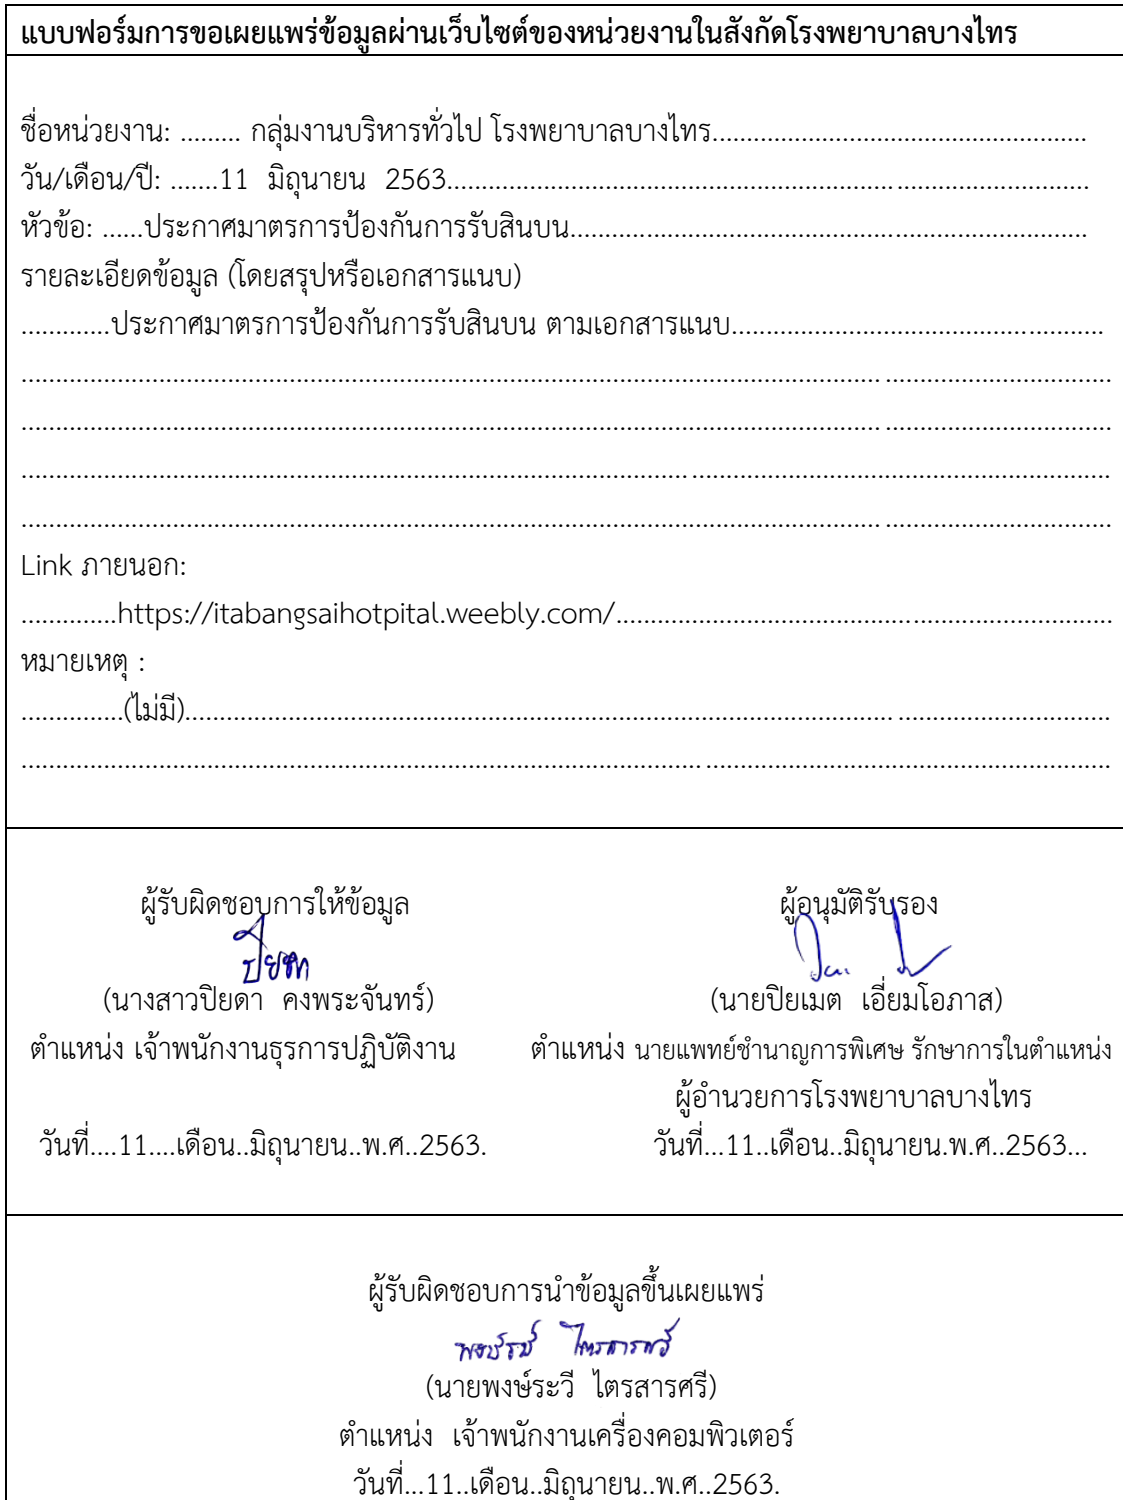 แบบฟอร์มการขอเผยแพร่ข้อมูลผ่านเว็บไซต์ของหน่วยงานในสังกัดโรงพยาบาลบางไทร
ชื่อหน่วยงาน: ......... กลุ่มงานบริหารทั่วไป โรงพยาบาลบางไทร......................................................
วัน/เดือน/ปี: .......11 มิถุนายน 2563..............................................................................................
หัวข้อ: ......ประกาศมาตรการป้องกันการรับสินบน...........................................................................
รายละเอียดข้อมูล (โดยสรุปหรือเอกสารแนบ)
.............ประกาศมาตรการป้องกันการรับสินบน ตามเอกสารแนบ......................................................
................................................................................................................................................................
................................................................................................................................................................
................................................................................................................................................................
................................................................................................................................................................
Link ภายนอก:
..............https://itabangsaihotpital.weebly.com/........................................................................
หมายเหตุ :
...............(ไม่มี).......................................................................................................................................
................................................................................................................................................................
ผู้รับผิดชอบการให้ข้อมูล ผู้อนุมัติรับรอง
ปิยดา
(นางสาวปิยดา คงพระจันทร์) (นายปิยเมต เอี่ยมโอภาส)
ตำแหน่ง เจ้าพนักงานธุรการปฏิบัติงาน ตำแหน่ง นายแพทย์ชำนาญการพิเศษ รักษาการในตำแหน่ง
ผู้อำนวยการโรงพยาบาลบางไทร
วันที่....11....เดือน..มิถุนายน..พ.ศ..2563. วันที่...11..เดือน..มิถุนายน.พ.ศ..2563...
ผู้รับผิดชอบการนำข้อมูลขึ้นเผยแพร่
พงษ์ระวี ไตรสารศรี
(นายพงษ์ระวี ไตรสารศรี)
ตำแหน่ง เจ้าพนักงานเครื่องคอมพิวเตอร์
วันที่...11..เดือน..มิถุนายน..พ.ศ..2563.